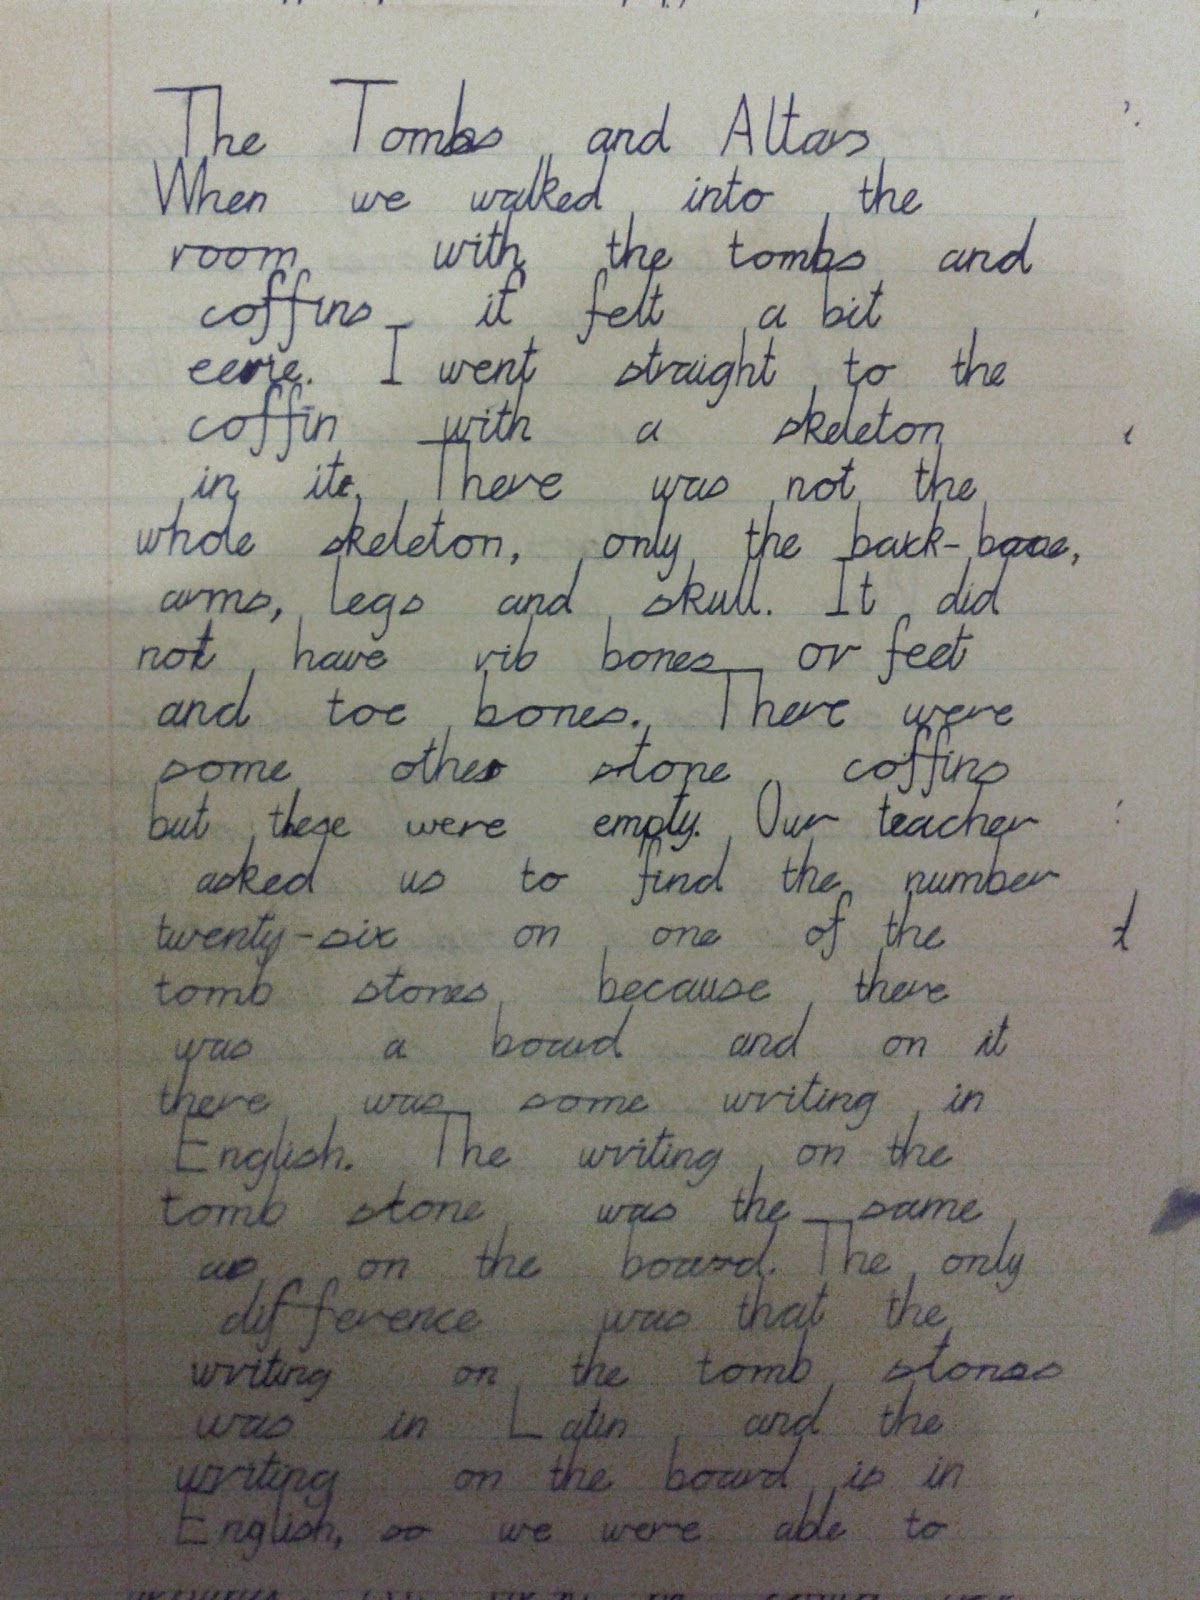 The Tombs and Altars
When we walked into the
room with the tombs and
coffins it felt a bit
eerie. I went straight to the
coffin with a skeleton
in it. There was not the
whole skeleton, only the back-bone,
arms, legs and skull. It did
not have rib bones or feet
and toe bones. There were
some other stone coffins
but these were empty. Our teacher
asked us to find the number
twenty-six on one of the
tomb stones because there
was a board and on it
there was some writing in
English. The writing on the
tomb stone was the same
as on the board. The only
difference was that the
writing on the tomb stones
was in Latin and the
writing on the board is in
English, so we were able to